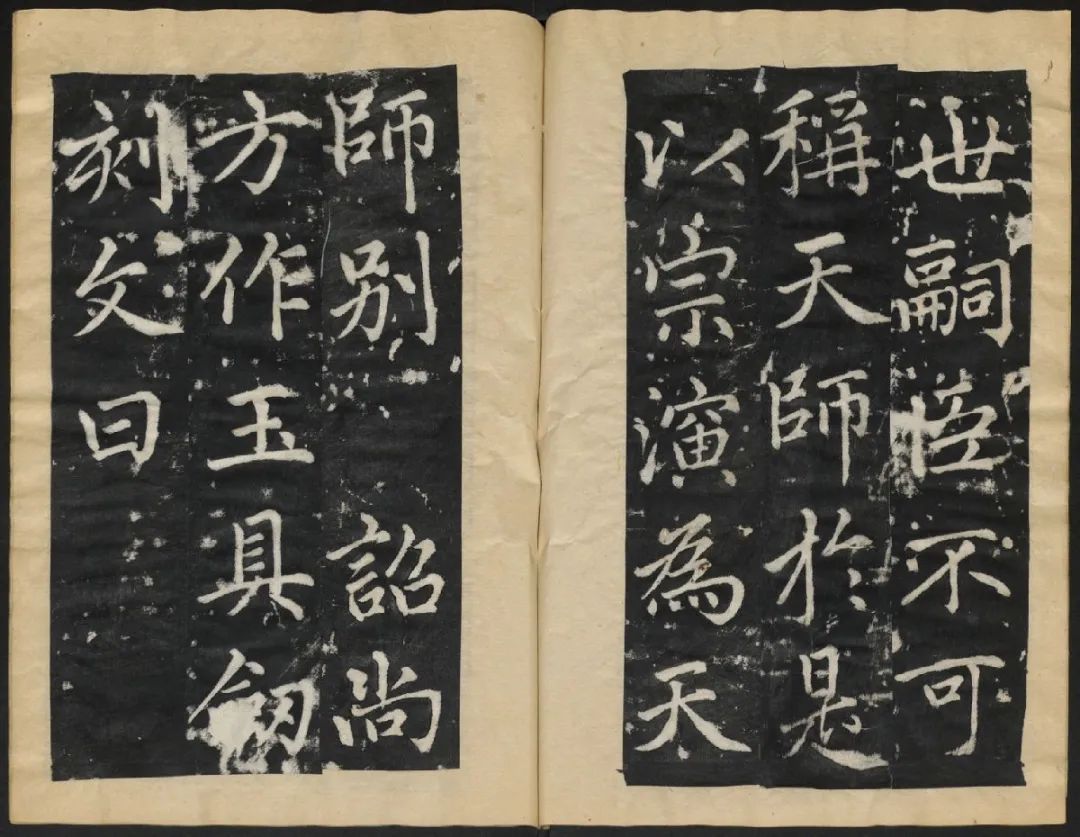 世嗣臣不可
稱天師於是
以宗演為天
師別 詔尚
方作玉具劒
刻文曰